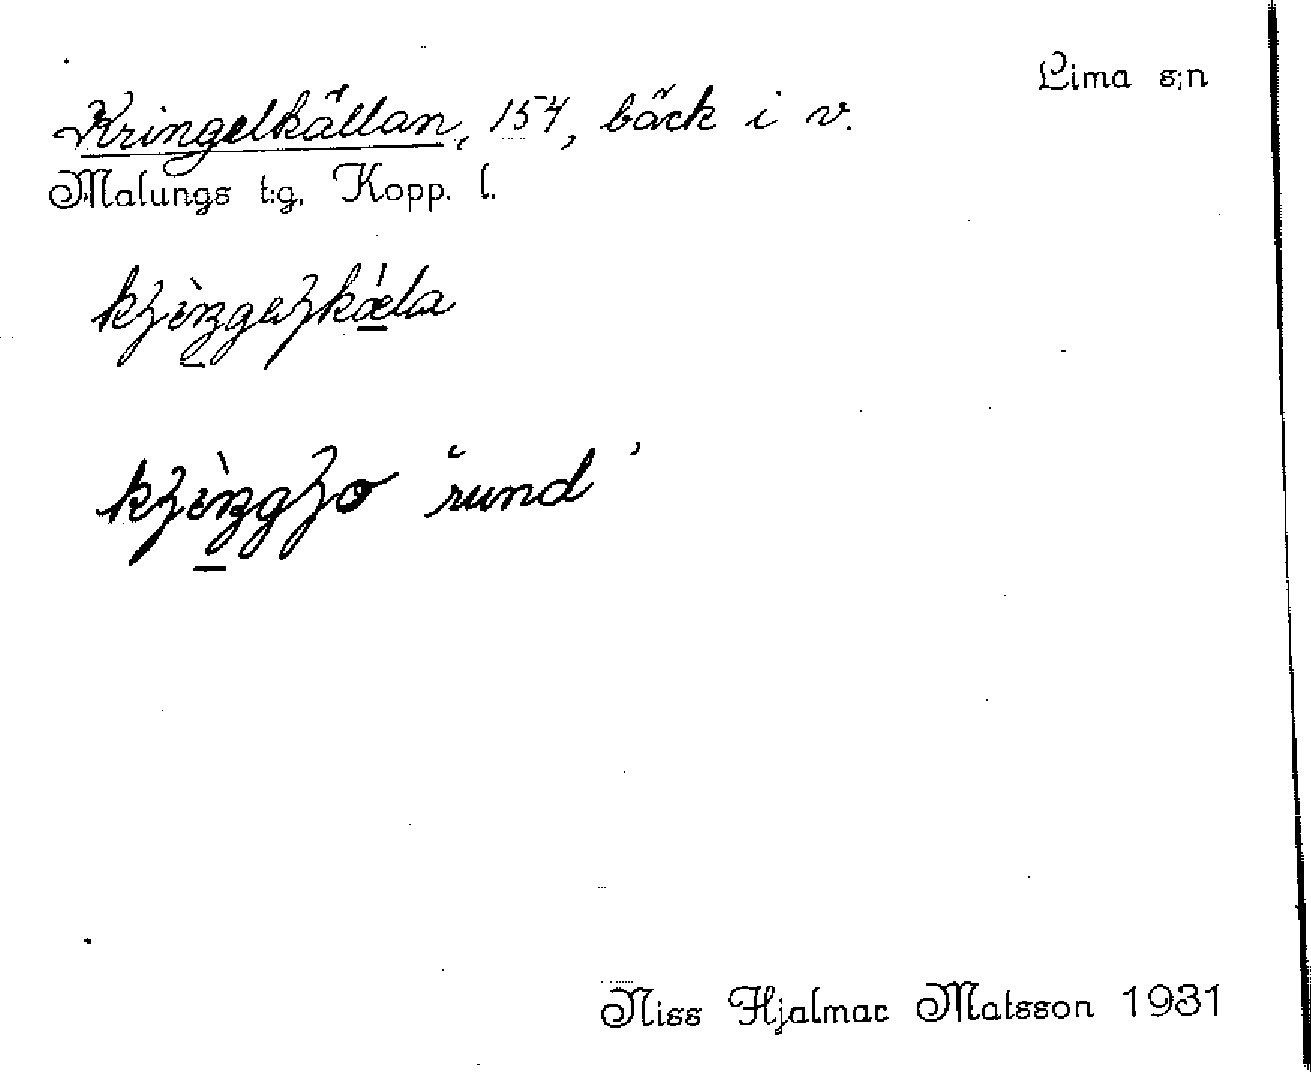 Lima s:n
Kringelkällan, 154, bäck i v.
Malungs t:g. Kopp. l.
rund
Niss Hjalmar Matsson 1931